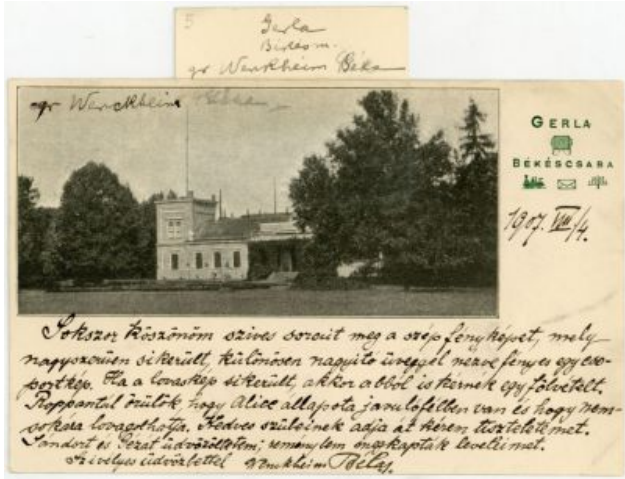 Gerla
gr Wenckheim Béla
gr Wenckheim Béla
GERLA
BÉKÉSCSABA
1907. VIII/4.
Sokszor köszönöm szives sorait meg a szép fényképet, mely
nagyszerűen sikerült, különösen nagyitó üveggel nézve fényes egy cso-
portkép. Ha a lovaskép sikerült, akkor abból is kérnek egy fölvételt.
Roppantúl örülök hogy Alice állapota javulófélben van és hogy nem-
sokára lovagolhatja. Kedves szüleinek adja át kérem tiszteletemet.
Sandort és Gézát üdvözöltetem; reménylem megkapták leveleimet.
Szivélyes üdvözlettel Wenckheim Béla